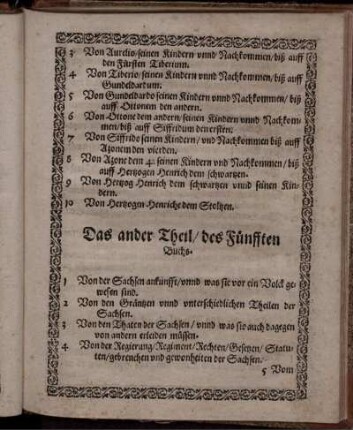 3 Von Aurelio/seinen Kindern vnnd Nachkommen/biß auff
den Fürsten Tiberium.
4 Von Tiberio/seinen Kindern vnnd Nachkommen/biß auff
Gundelbardum.
5 Von Gundelbardo seinen Kindern vnnd Nachkommen/biß
auff Ottonem den andern.
6 Von Ottone dem andern/seinen Kindern vnnd Nachkom-
men/biß auff Siffridum den ersten:
7 Von Siffrido seinen Kindern/vnd Nachkommen biß auff
Azonem den vierden.
8 Von Azone dem 4: seinen Kindern vnd Nachkommen/biß
auff Hertzogen Henrich dem schwartzen.
9 Von Hertzog Henrich dem schwartzen vnnd seinen Kin-
dern.
10 Von Hertzogn Henriche dem Stoltzen.
Das ander Theil/des Fünfften
Buchs.
1 Von der Sachsen ankunfft/vnnd was sie vor ein Volck ge-
wesen sind.
2 Von den Gräntzen vnnd vnterschiedlichen Theilen der
Sachsen.
3 Von den Thaten der Sachsen/vnnd was sie auch dagegen
von andern erleiden müssen.
4 Von der Regierung/Regiment/Rechten/Gesetzen/Statu-
ten/gebreuchen vnd gewonheiten der Sachsen.
5 Vom